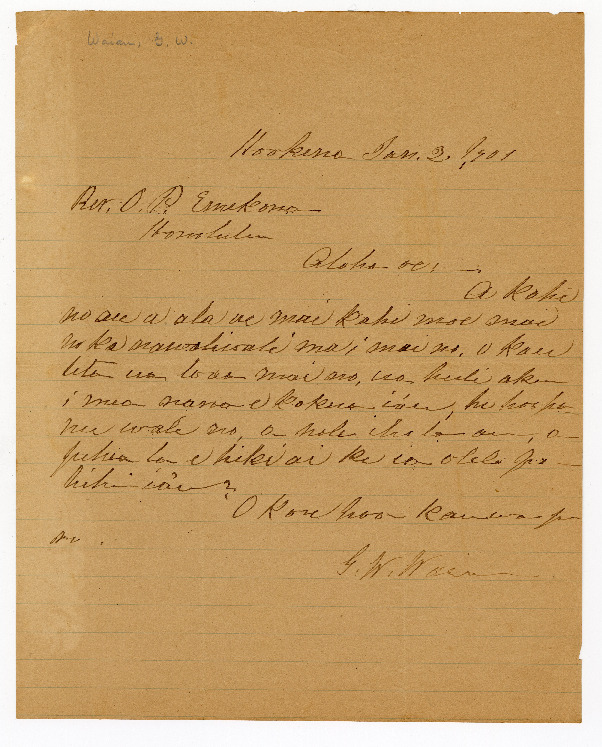 Waiau, G. W.
Hookena Jan. 2, 1901
Rev. O. P. Emekona
Honolulu
Aloha oe;
A kahi
no au a ala ae mai kahi moe mai
no ka nawaliwali ma'i mai no, o kau
leta ua loaa mai no, ua huli aku
i mea nana e kokua ia'u, he hoopu
nee wale no, a nole iho la au, a
pehea la e hiki ai ke ia olelo pa
ia'u?
O Kou hoa kauwa
G. W. Waiau